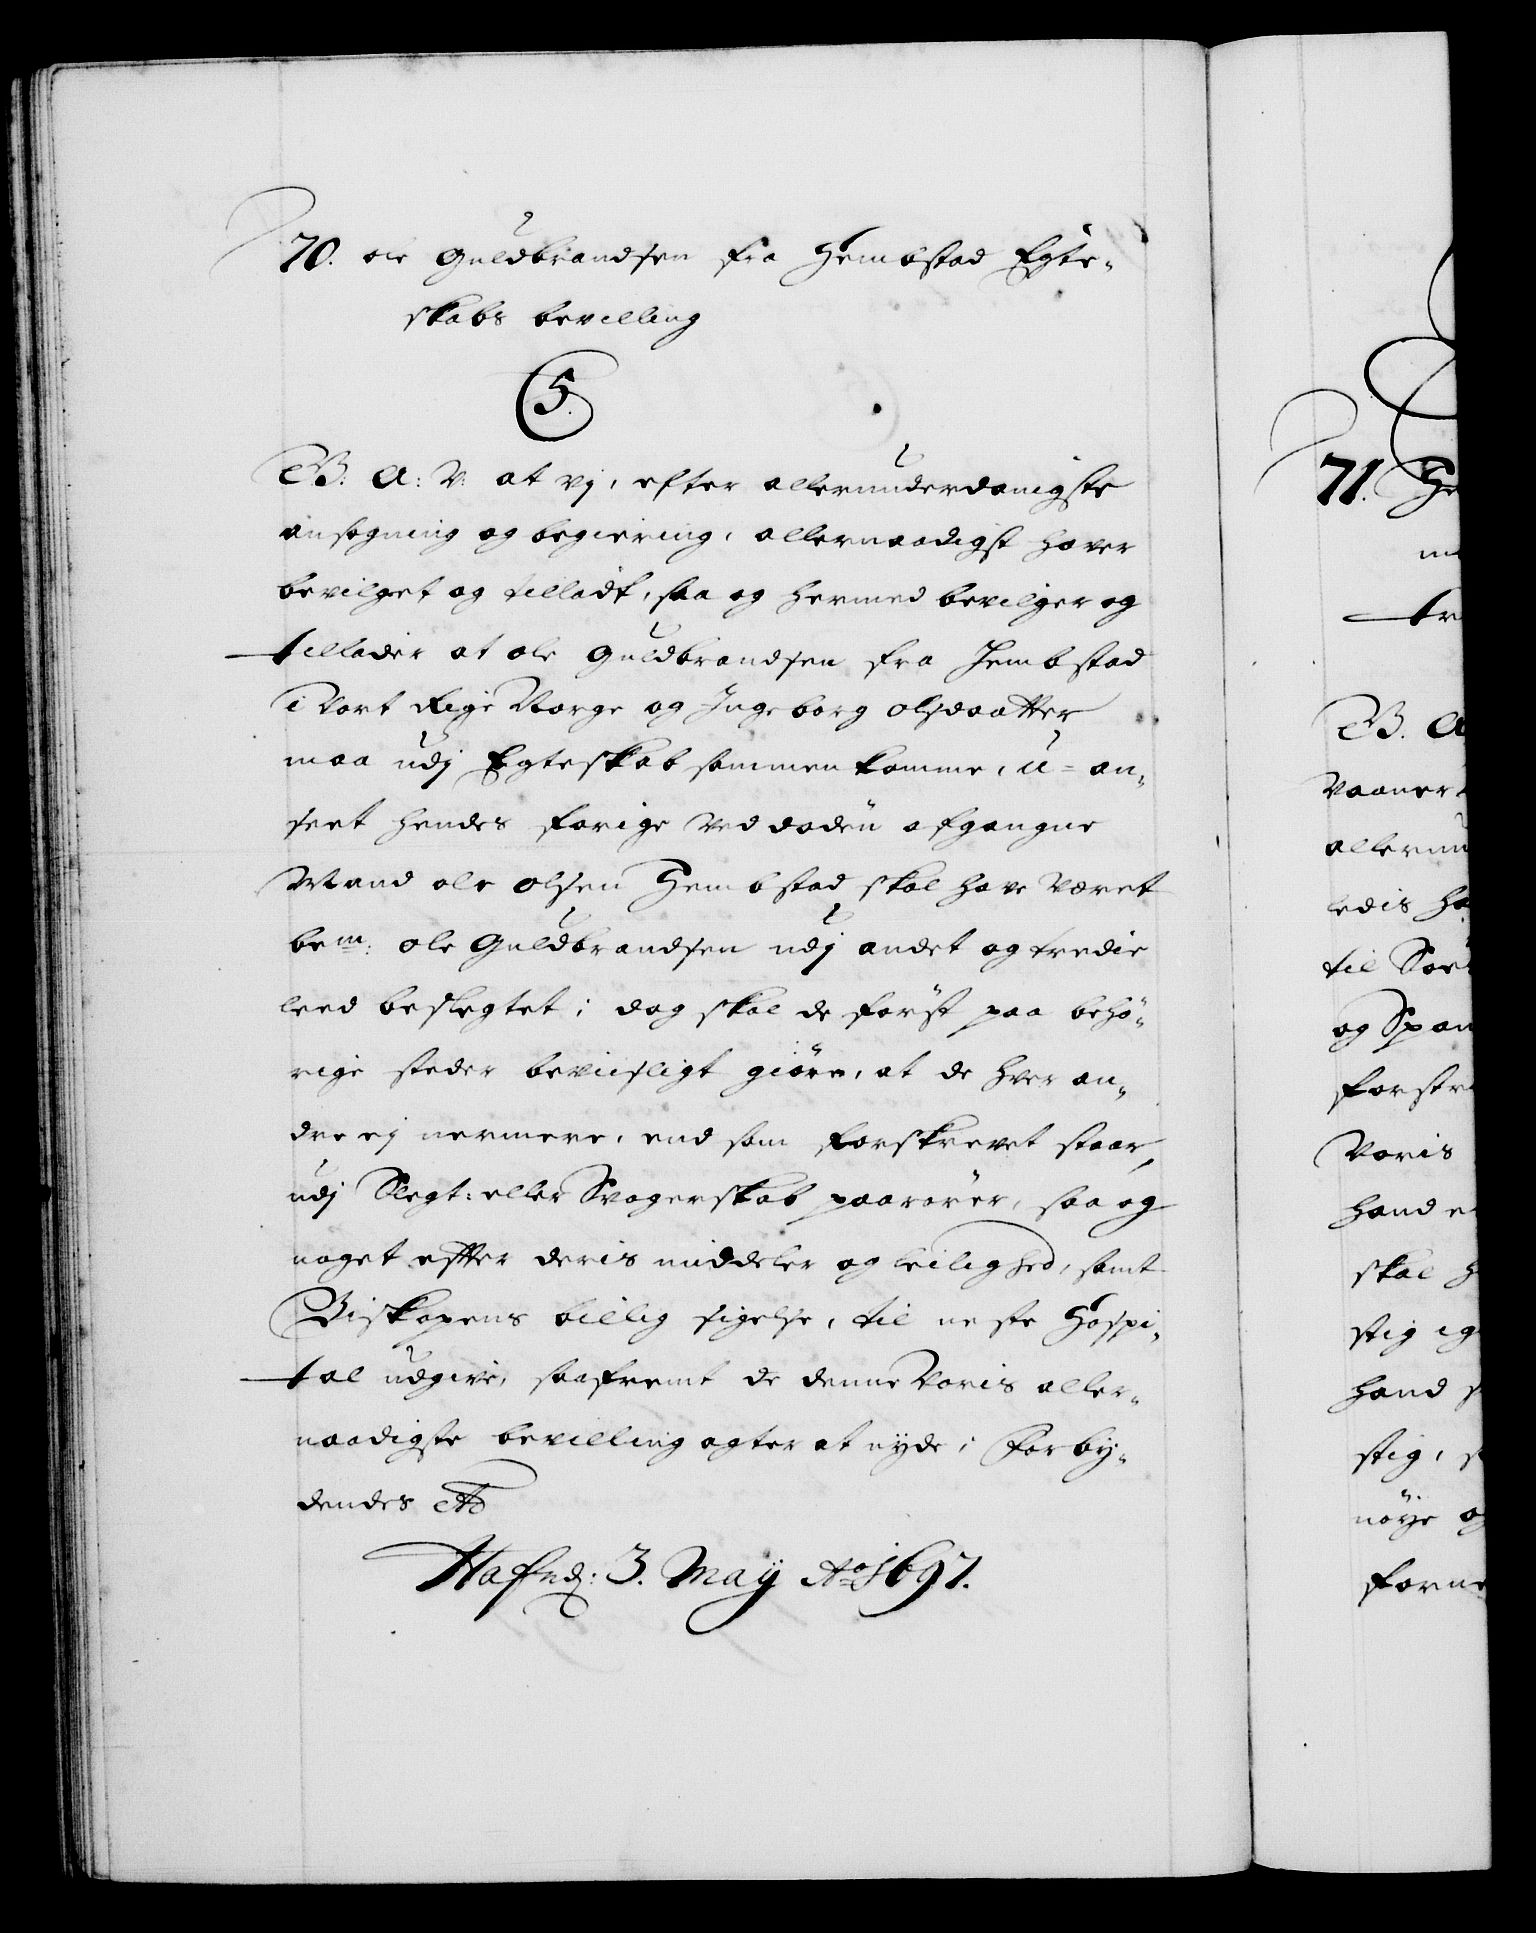 70. Ole Guldbrandsen fra Hembstad Egte-
skabs bevilling
5.
G. A: V. at vj, efter allerunderdanigste
ansøgning og begiering, allernaadigst haver
bevilget og tilladt, saa og hermed bevilger og
tillader at Ole Guldbrandsen fra Hembstad
i Vort Rige Norge og Ingeborg Olsdaatter
maa udj Egteskab sammen komme, u-an-
seet hendes forige ved døden afgangne
Mand Ole Olsen Hembstad skal have veret
bem: Ole Guldbrandsen udj andet og tredie
leed beslegtet; dog skal de først paa behö-
rige steder beviisligt giöre, at de hver an-
dre ej nermere, end som forskrevet staar,
udj Slegt: eller Svogerskab paarører, saa og
noget effter deris middeler og leilighed, samt
Biskopens billig sigelse, til neste Hospi-
tal udgive, saafremt de denne Voris aller-
naadigste bevilling agter at nyde; Forby-
dendes etc
Hafn: 3. Maij Ao 1697.
71. He
tr
G. A
Vaaner
allerun
ledis ha
til Soe
og Span
forstr
Voris
hand e
skal h
stig ig
hand s
stig, s
nöye og
forne